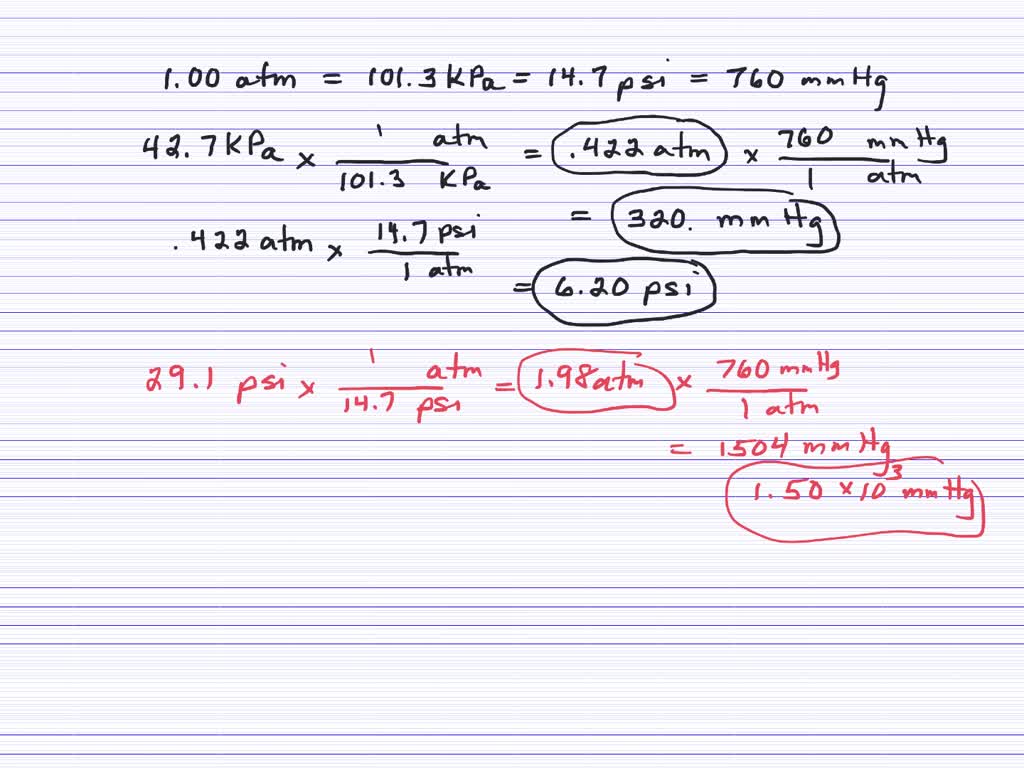 1.00 atm = 101.3 KPa = 14.7 psi = 760 mmHg
42.7 KPa × 1 atm / 101.3 KPa = .422 atm × 760 mmHg / 1 atm
= 320. mmHg
.422 atm × 14.7 psi / 1 atm
= 6.20 psi
29.1 psi × 1 atm / 14.7 psi = 1.98 atm × 760 mmHg / 1 atm
= 1504 mmHg
1.50 × 10³ mmHg